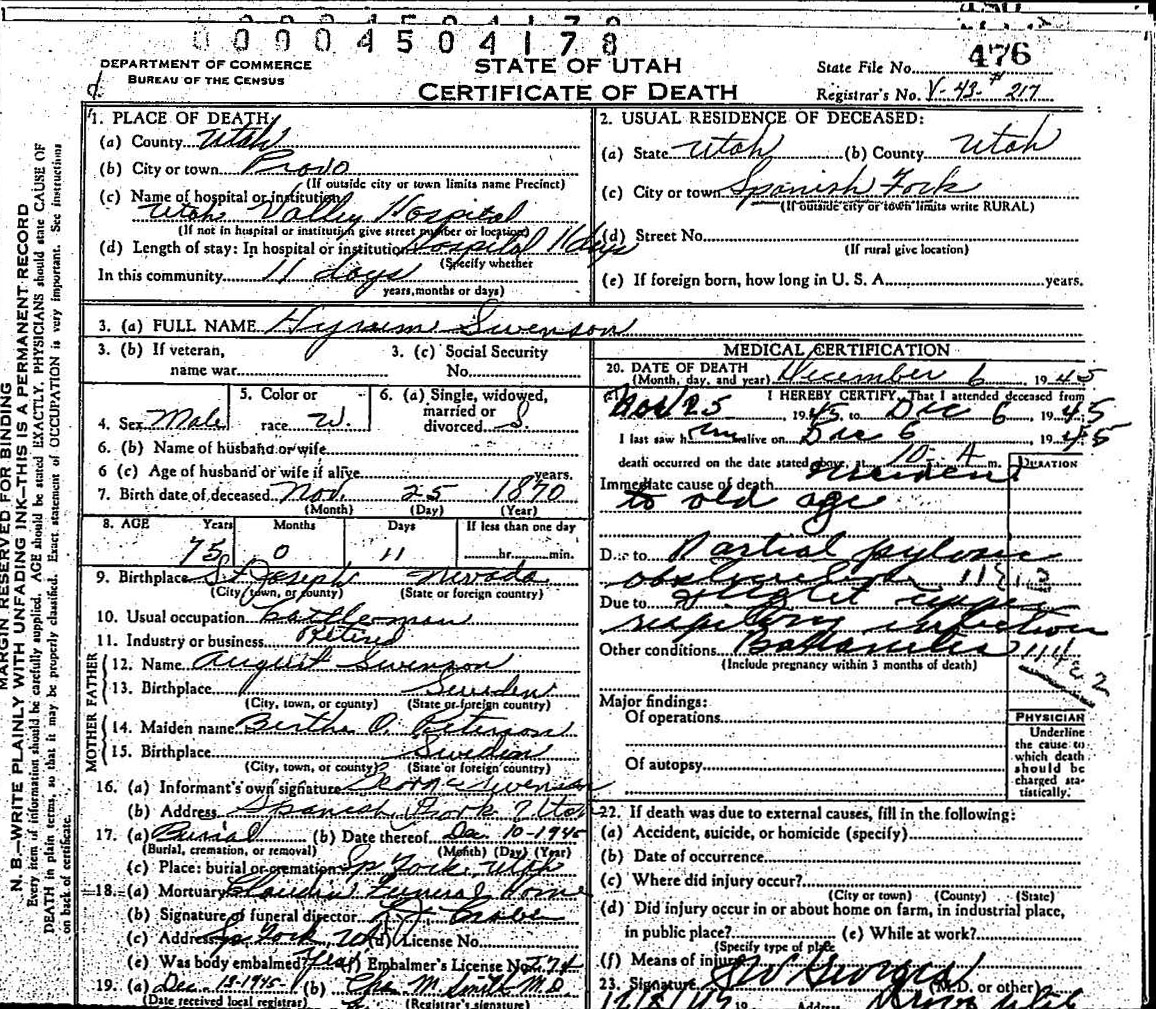 0 0 0 0 4 5 0 4 1 7 8
476
DEPARTMENT OF COMMERCE
BUREAU OF THE CENSUS
STATE OF UTAH
CERTIFICATE OF DEATH
State File No.
Registrar's No. V-43-# 217
MARGIN RESERVED FOR BINDING
N. B.—WRITE PLAINLY WITH UNFADING INK—THIS IS A PERMANENT RECORD
Every item of information should be carefully supplied. AGE should be stated EXACTLY. PHYSICIANS should state CAUSE OF
DEATH in plain terms, so that it may be properly classified. Exact statement of OCCUPATION is very important. See instructions
on back of certificate.
1. PLACE OF DEATH
(a) County Utah
(b) City or town Provo
(If outside city or town limits name Precinct)
(c) Name of hospital or institution
Utah Valley Hospital
(If not in hospital or institution give street number or location)
(d) Length of stay: In hospital or institution Hospital 11 days
(Specify whether
In this community 11 days
years, months or days)
2. USUAL RESIDENCE OF DECEASED:
(a) State Utah (b) County Utah
(c) City or town Spanish Fork
(If outside city or town limits write RURAL)
(d) Street No.
(If rural give location)
(e) If foreign born, how long in U. S. A. years.
3. (a) FULL NAME Hyrum Swenson
3. (b) If veteran,
name war
3. (c) Social Security
No.
4. Sex Male
5. Color or
race W.
6. (a) Single, widowed,
married or
divorced S.
6. (b) Name of husband or wife
6 (c) Age of husband or wife if alive years.
7. Birth date of deceased Nov. 25 1870
(Month) (Day) (Year)
8. AGE Years Months Days If less than one day
75 0 11 hr. min.
9. Birthplace St. Joseph Nevada
(City, town, or county) (State or foreign country)
10. Usual occupation Cattleman
11. Industry or business Retired
FATHER
12. Name August Swenson
13. Birthplace Sweden
(City, town, or county) (State or foreign country)
MOTHER
14. Maiden name Bertha O. Peterson
15. Birthplace Sweden
(City, town, or county) (State or foreign country)
16. (a) Informant's own signature George Swenson
(b) Address Spanish Fork Utah
17. (a) Burial (b) Date thereof Dec. 10-1945
(Burial, cremation, or removal) (Month) (Day) (Year)
(c) Place: burial or cremation Sp Fork, Utah
18. (a) Mortuary Claudin Funeral Home
(b) Signature of funeral director
(c) Address Sp Fork, Ut (d) License No.
(e) Was body embalmed? Yes (f) Embalmer's License No. 574
19. (a) Dec. 13-1945 (b) M. Smith M.D.
(Date received local registrar) (Registrar's signature)
MEDICAL CERTIFICATION
20. DATE OF DEATH
(Month, day, and year) December 6, 1945
I HEREBY CERTIFY, That I attended deceased from
Nov 25 1945, to Dec 6, 1945
I last saw him alive on Dec 6, 1945
death occurred on the date stated above, at 10- A m.
DURATION
Immediate cause of death
to old age
Due to Partial pyloric
obstruction
Due to Slight upper
respiratory infection
Other conditions
(Include pregnancy within 3 months of death)
Major findings:
Of operations
Of autopsy
PHYSICIAN
Underline
the cause to
which death
should be
charged sta-
tistically.
22. If death was due to external causes, fill in the following:
(a) Accident, suicide, or homicide (specify)
(b) Date of occurrence
(c) Where did injury occur?
(City or town) (County) (State)
(d) Did injury occur in or about home on farm, in industrial place,
in public place? (e) While at work?
(Specify type of place
(f) Means of injury
23. Signature (M.D. or other)
Address Provo Utah